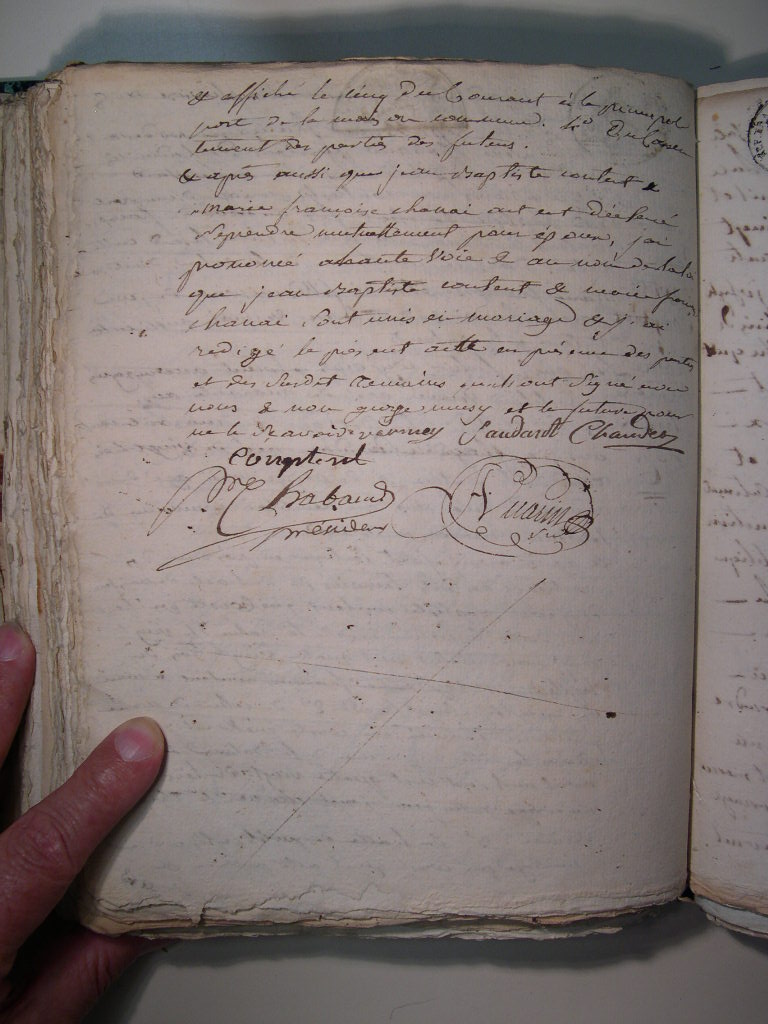 & affiché le cinq du Courant à la principal
port de la maison commune. 4.o du Consen
tement des partis des futurs.
& après aussi que jean Baptiste coutent &
marie françoise chanai ont est déclaré
se prendre mutuellement pour époux, j'ai
prononcé a haute Voie & au nom de la loi
que jean Baptiste coutent & marie fran
chanai sont unis en mariage & j'ai
redigé le présent acte en présence des partis
et des susdit temoins qui ont Signé avec
nous & non george et la future pour
ne le Savoir vernney Saudardt
Rabaud
président